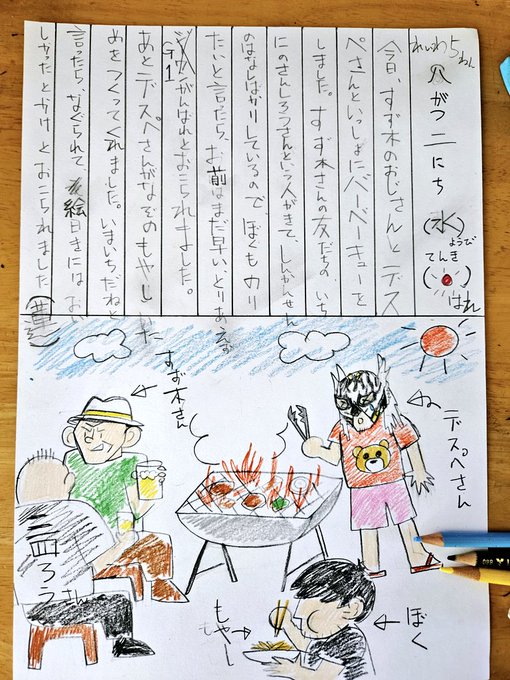 れいわ5ねん
八がつ二にち(水)ようび
てんき( )はれ
今日、すず木のおじさんとデス
ペさんといっしょにバーベキューを
しました。すず本さんの友だちの、いち
にのさんしろうさんという人がきて、しんかんせん
のはなしばかりしているので、ぼくものり
たいと言ったら、お前はまだ早い、とりあえず
G1がんばれとおこられました。
あとデスペさんがなぞのもやしいた
めをつくってくれました。いまいちだねと
言ったら、なぐられて、絵日きには、おい
しかったとかけとおこられました
すず木さん
デスペさん
三四ろうさん
ぼく
もやし